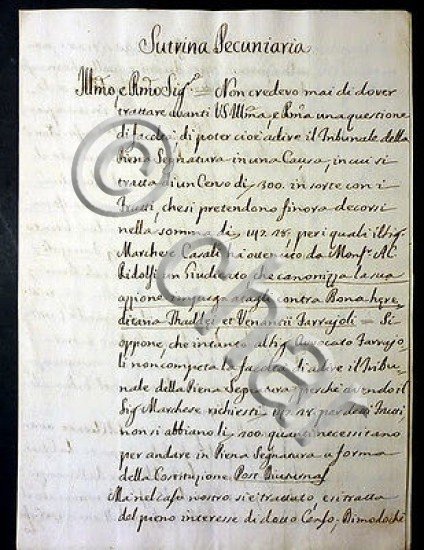 Sutrina Pecuniaria
Illmo, e Rmo Sig.e = Non credevo mai di dover
trattare avanti VS Illma, e Rma una questione
di facoltà di poter cioè adire il Tribunale della
Piena Segnatura in una Causa, in cui si
tratta di un Censo di 300. in sorte con i
frutti, che si pretendono finora decorsi
nella somma di 192.28, per i quali il Sig.
Marchese Casali ha ottenuto da Monsr. Al
Ridolfi un Giudicato che canonizza la sua
opposne contra Bona here
ditaria Thaddei et Venantii Farrajoli = Si
oppone, che intanto al Sig. Avvocato Farrajo
li non competa la facoltà di adire il Tribu
nale della Piena Segnatura, perchè avendo il
Sig Marchese richiesti 192.28. per detti frutti,
non si abbiano li 500. quanti necessitano
per andare in Piena Segnatura a forma
della Costituzione Post Diuturna
Mà nel caso nostro si è trattato, e si tratta
del pieno interesse di detto Censo, Dimodochè